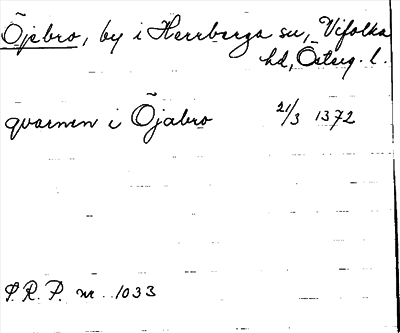 Öjebro, by i Herrberga sn, Vifolka
hd, Österg. l.
qvarnen i Öjabro 21/3 1372
S.R.P. nr. 1033